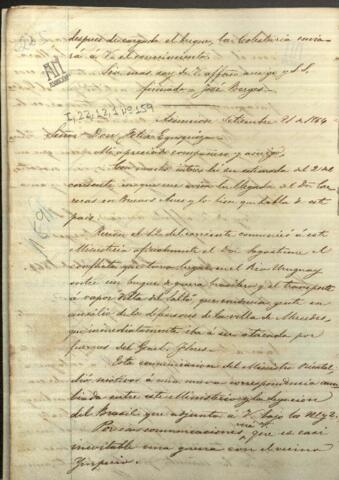 despues de cargado el buque, la Colecturia envia-
rá á V. el conocimiento.
Sin mas soy de V. affmo amigo y S. S.
firmado José Berges.
I, 22, 12, 1 nº 159
Asuncion Setiembre 21 de 1864
Señor Don Felix Eguzquiza
Mi apreciado compañero y amigo.
Con mucho interés he en su estimada del 2 del
corriente en que me avisa la llegada al Dr. Car-
reras en Buenos Aires y lo bien que habla de este
pais.
Recien el 12 del corriente comunicó á este
Ministerio oficialmente el Dr. Sagastume el
conflicto que tuvo lugar en el Rio Uruguay
entre un buque de guerra brasilero y el transporte
á vapor Villa del Salto, que conducia gente en
auxilio de la defensores de la villa de Mercedes,
que inmediatamente iba á ser atacada por
fuerzas del Genl. Flores.
Esta comunicacion del Ministro Oriental
dió motivos á una nueva correspondencia cam-
biada entre este Ministerio y la Legacion
del Brasil que adjunto á V. bajo los Nos. 1 y 2.
Por esas comunicaciones, verá V. que es casi
inevitable una guerra con el vecino
Imperio.